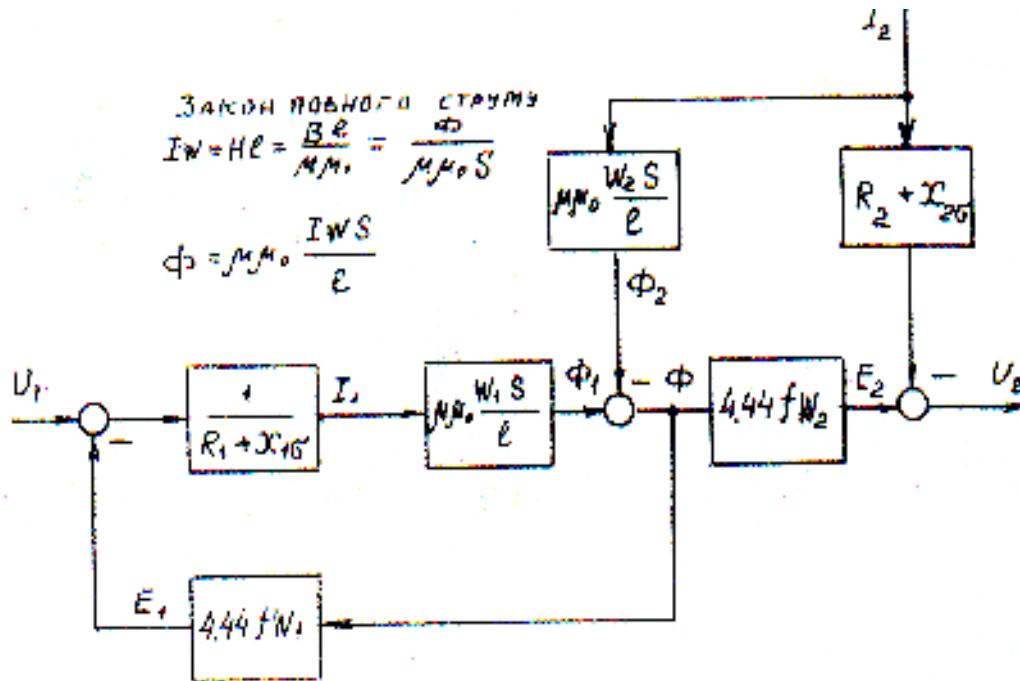 I₂
ЗАКОН ПОВНОГО СТРУМУ
IW = Hℓ = Bℓ / μμ₀ = Φ / μμ₀S
Φ = μμ₀ IWS / ℓ
μμ₀ W₂S / ℓ
R₂ + X₂σ
Φ₂
U₁
−
1 / R₁ + X₁σ
I₁
μμ₀ W₁S / ℓ
Φ₁
−
Φ
4,44 fW₂
E₂
−
U₂
E₁
4,44 fW₁